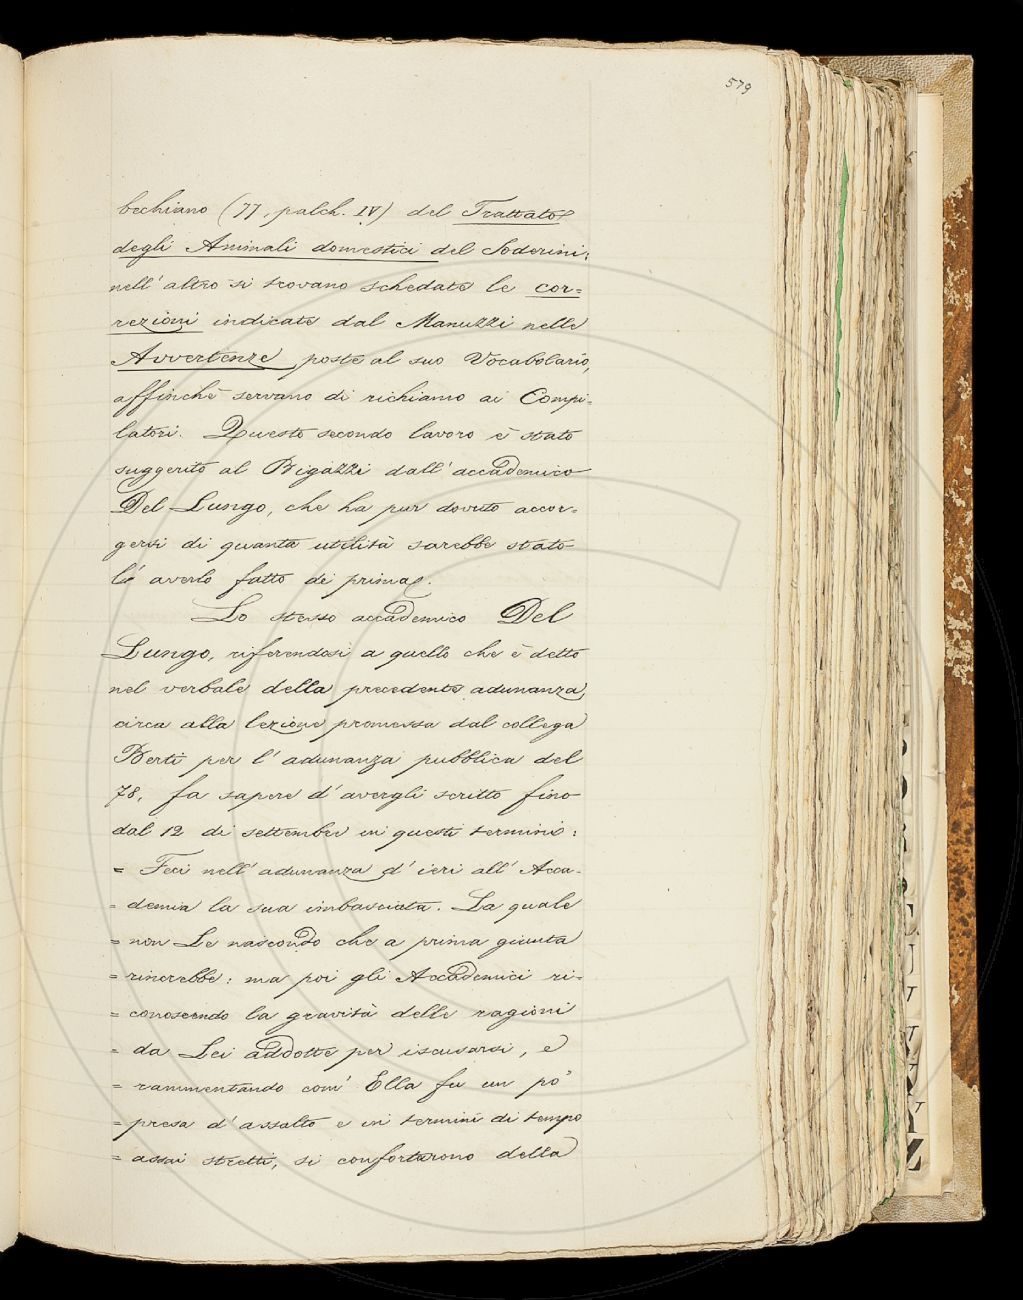 579
bechiano (77, palch. IV) del Trattato
degli Animali domestici del Soderini;
nell'altro si trovano schedate le cor=
rezioni indicate dal Manuzzi nelle
Avvertenze poste al suo Vocabolario,
affinchè servano di richiamo ai Compi=
latori. Questo secondo lavoro è stato
suggerito al Bigazzi dall'accademico
Del Lungo, che ha pur dovuto accor=
gersi di quanta utilità sarebbe stato
l'averlo fatto dei prima.
Lo stesso accademico Del
Lungo, riferendosi a quello che è detto
nel verbale della precedente adunanza,
circa alla lezione promessa dal collega
Berti per l'adunanza pubblica del
78, fa sapere d'avergli scritto fino
dal 12 di settembre in questi termini:
= Feci nell'adunanza d'ieri all'Acca-
= demia la sua imbasciata. La quale
= non Le nascondo che a prima giunta
= rincrebbe: ma poi gli Accademici ri-
= conoscendo la gravità delle ragioni
= da Lei addotte per iscusarsi, e
= rammentando com'Ella fu un po'
= presa d'assalto e in termini di tempo
= assai stretti, si confortarono della